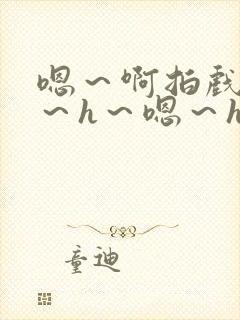 嗯～啊拍戏
～h～嗯～h
童迪